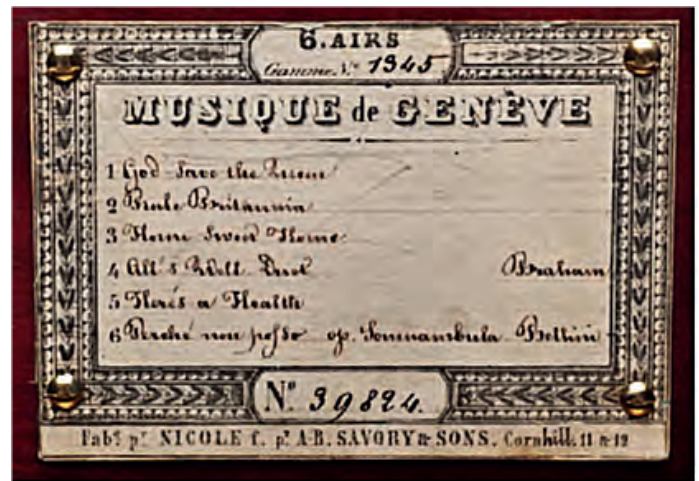 6.AIRS
Gamme No 1345
MUSIQUE de GENÈVE
1 God Save the Queen
2 Rule Britannia
3 Home Sweet Home
4 All's Well Duet Braham
5 Here's a Health
6 Perché non posso op. Somnambula Bellini
No 39824.
Fabt pr NICOLE f. pr A.B. SAVORY & SONS. Cornhill. 11 & 12